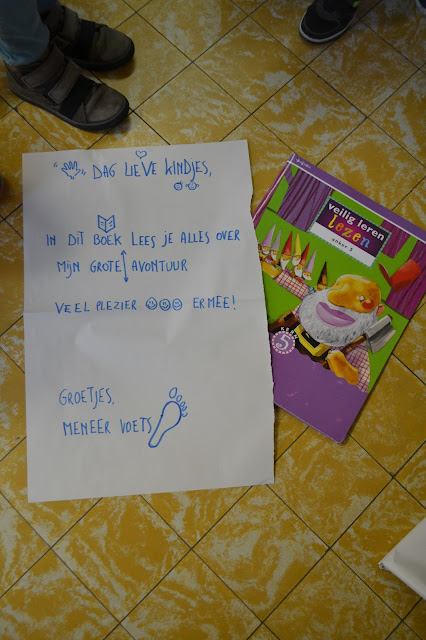 DAG LIEVE KINDJES,
IN DIT BOEK LEES JE ALLES OVER
MIJN GROTE AVONTUUR
VEEL PLEZIER ERMEE!
GROETJES,
MENEER VOETS
veilig leren
lezen
anker 5
KERN
5